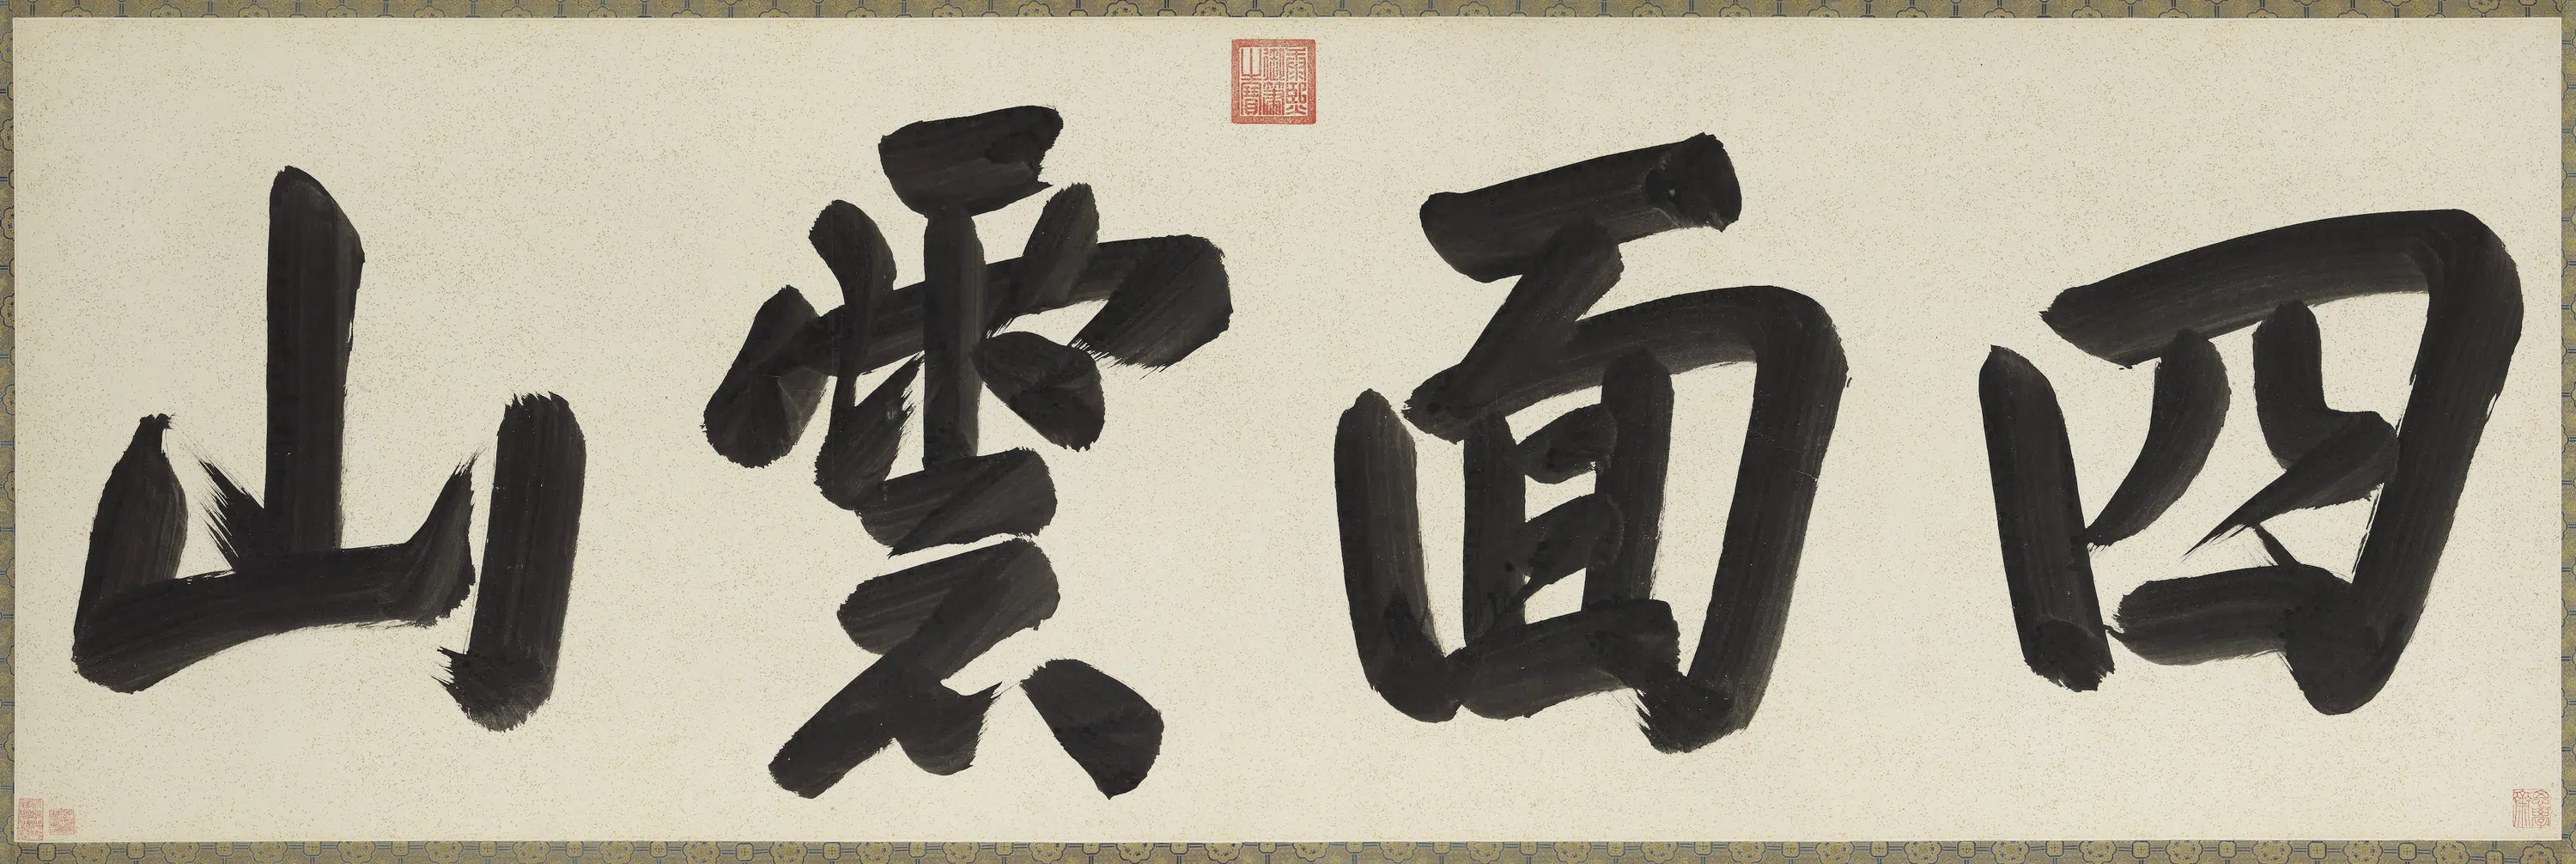 四面雲山
康熙御筆之寶